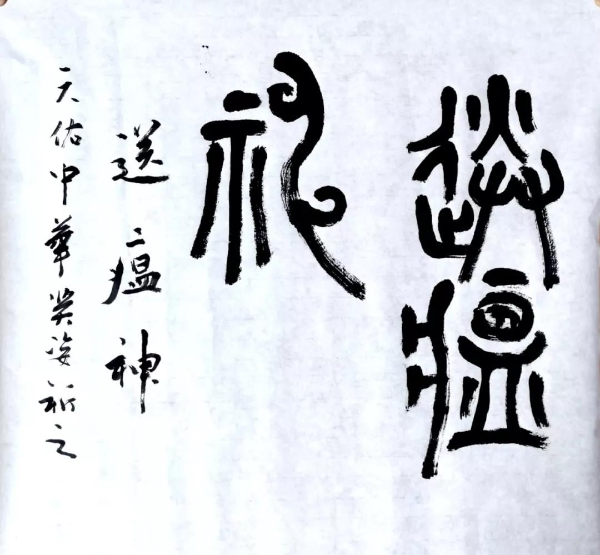 送瘟
神
送瘟神
天佑中華英姿祈之